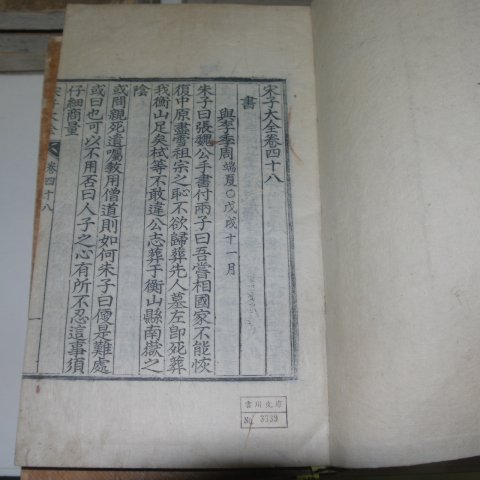 宋子大全卷四十八
書
與李季周 端夏○戊戌十一月
朱子曰張魏公手書付兩子曰吾嘗相國家不能恢
復中原盡雪祖宗之恥不欲歸葬先人墓左卽死葬
我衡山足矣栻等不敢違公志葬于衡山縣南嶽之
陰
或問親死遺囑敎用僧道則如何朱子曰便是難處
或曰也可以不用否曰人子之心有所不忍這事須
仔細商量
宋子大全 卷四十八 一
No. 3339